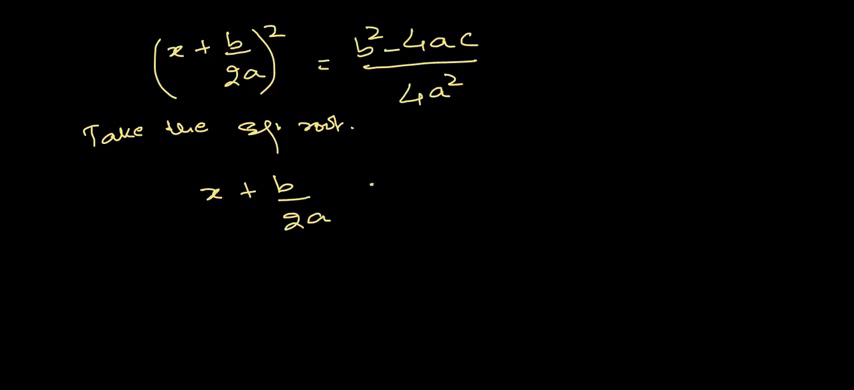 (x + b/2a)² = b² - 4ac / 4a²
Take the sq. root.
x + b/2a